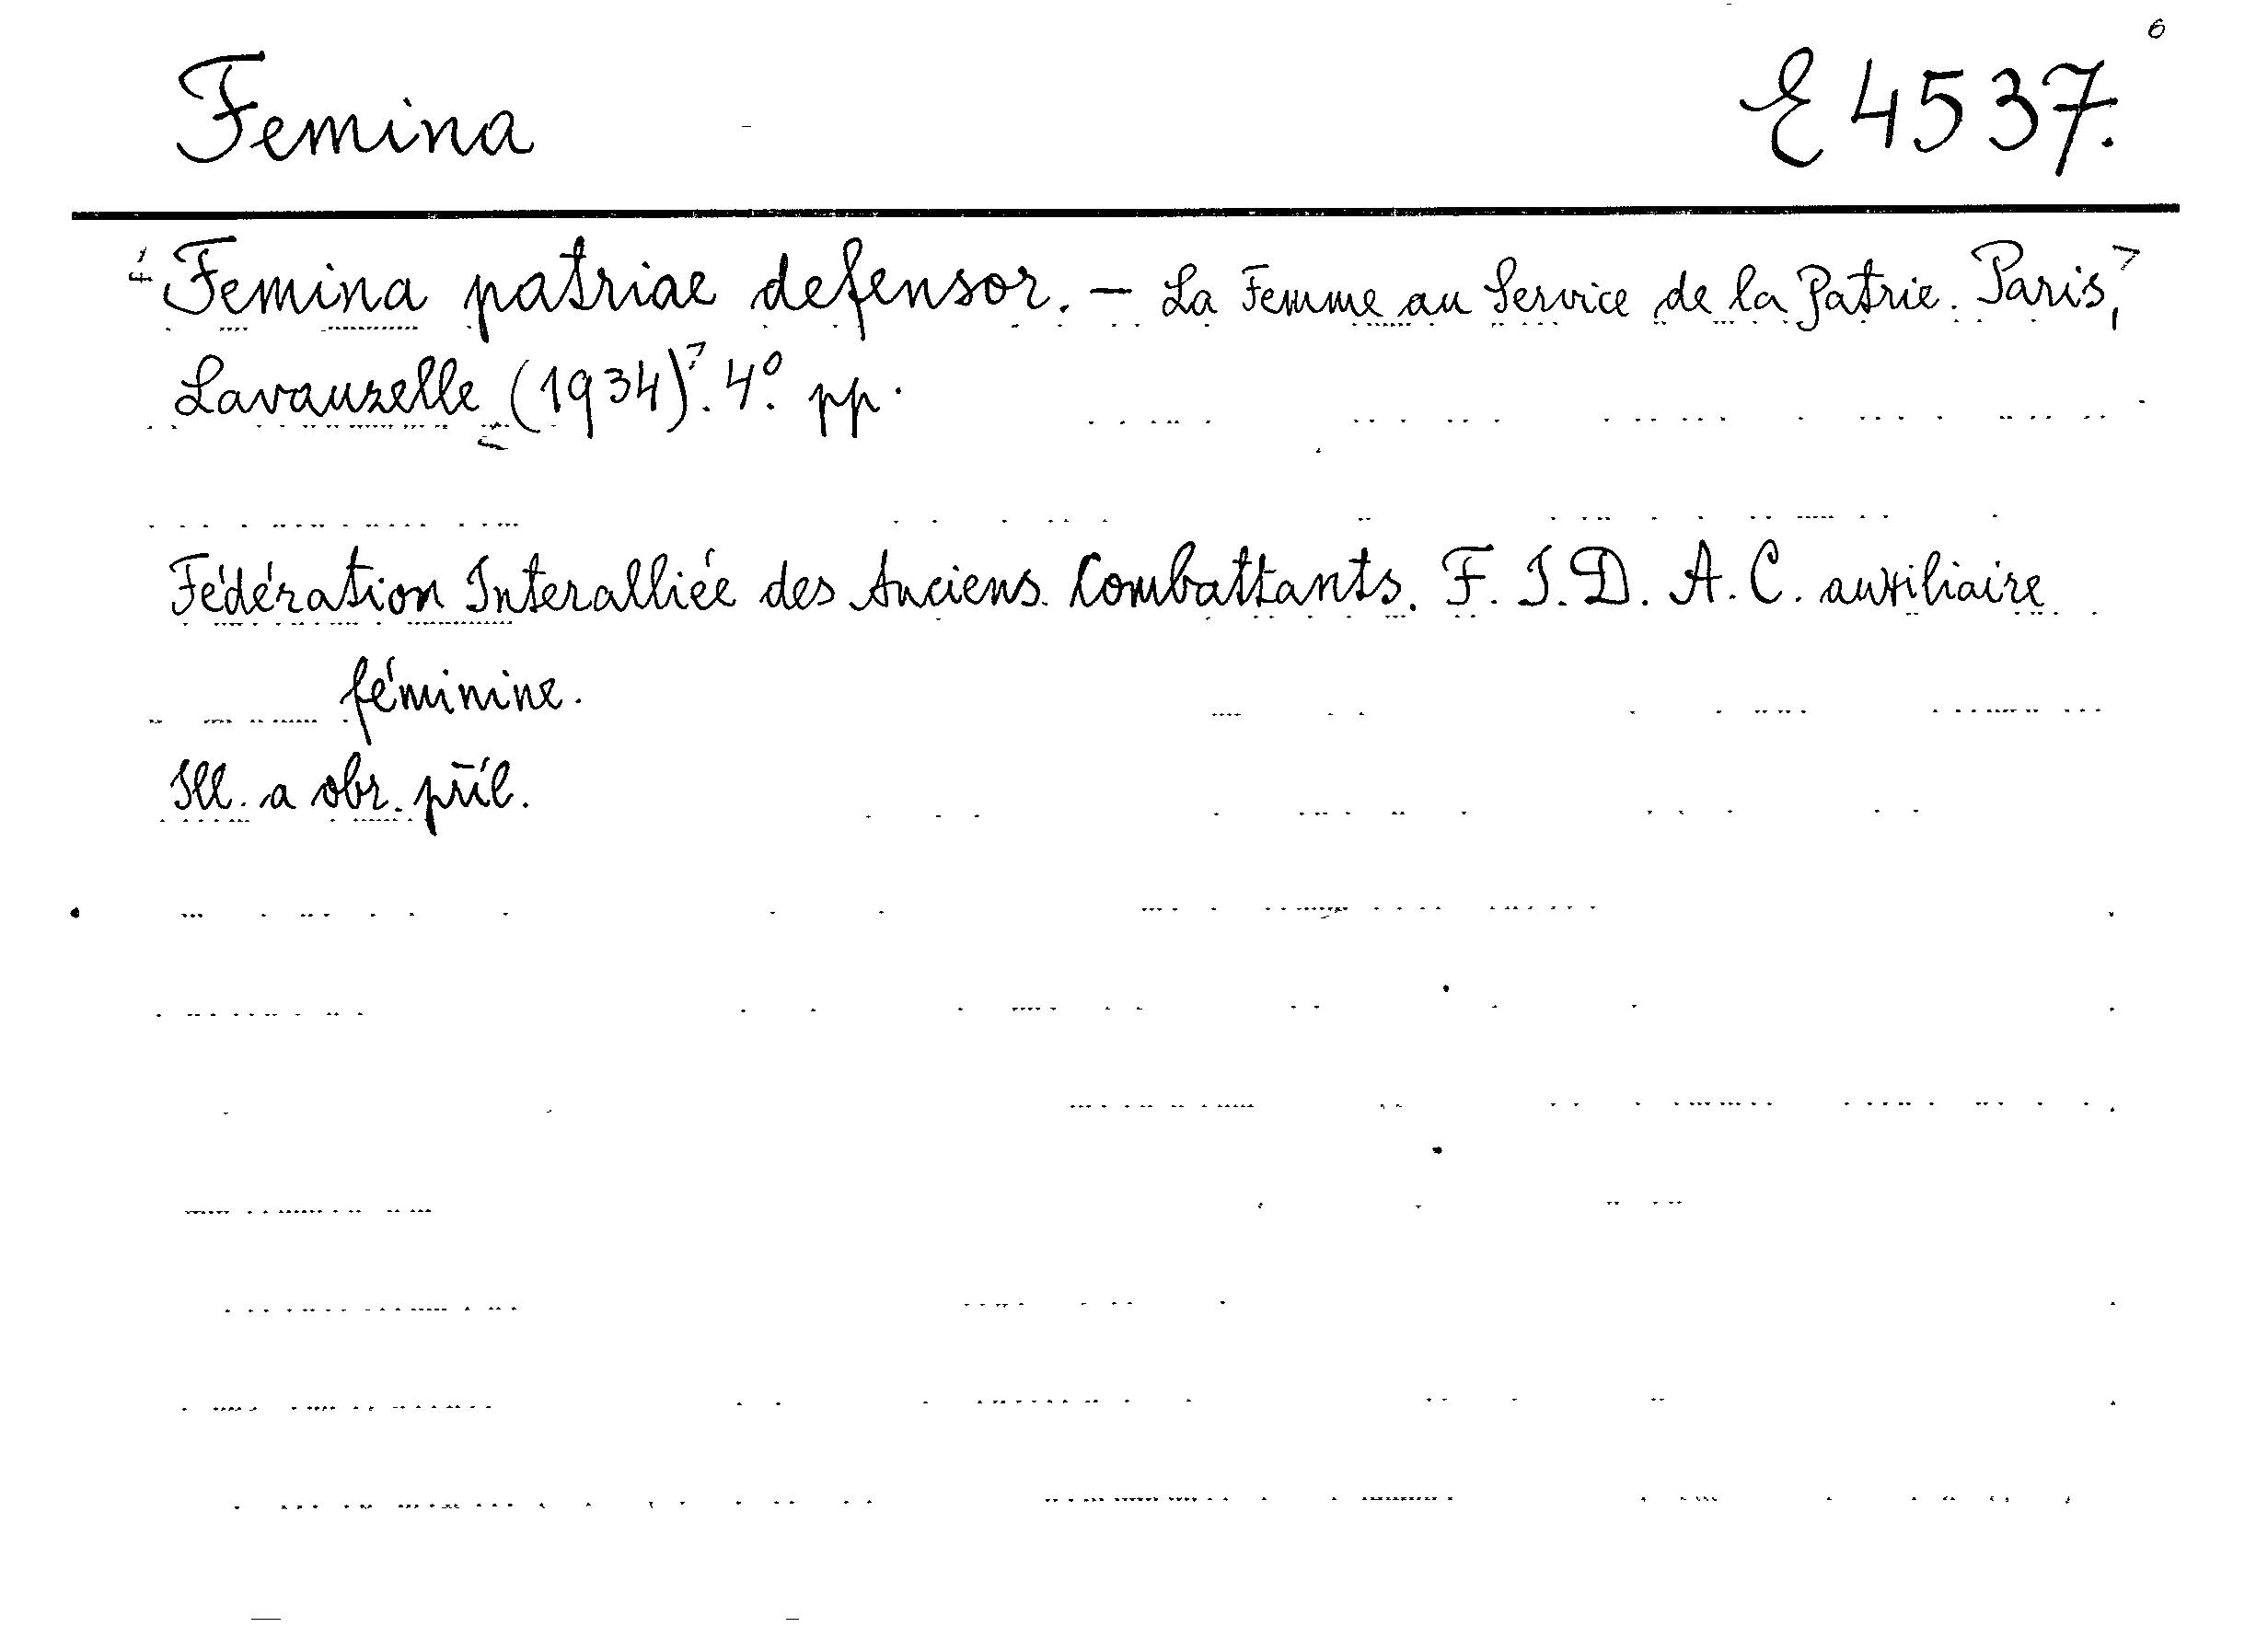 6
Femina E 4537.
Femina patriae defensor. – La Femme au Service de la Patrie. Paris,
Lavauzelle (1934). 4º. pp.
Fédération Interalliée des Anciens Combattants. F. I. D. A. C. auxiliaire
féminine.
Ill. a obr. příl.